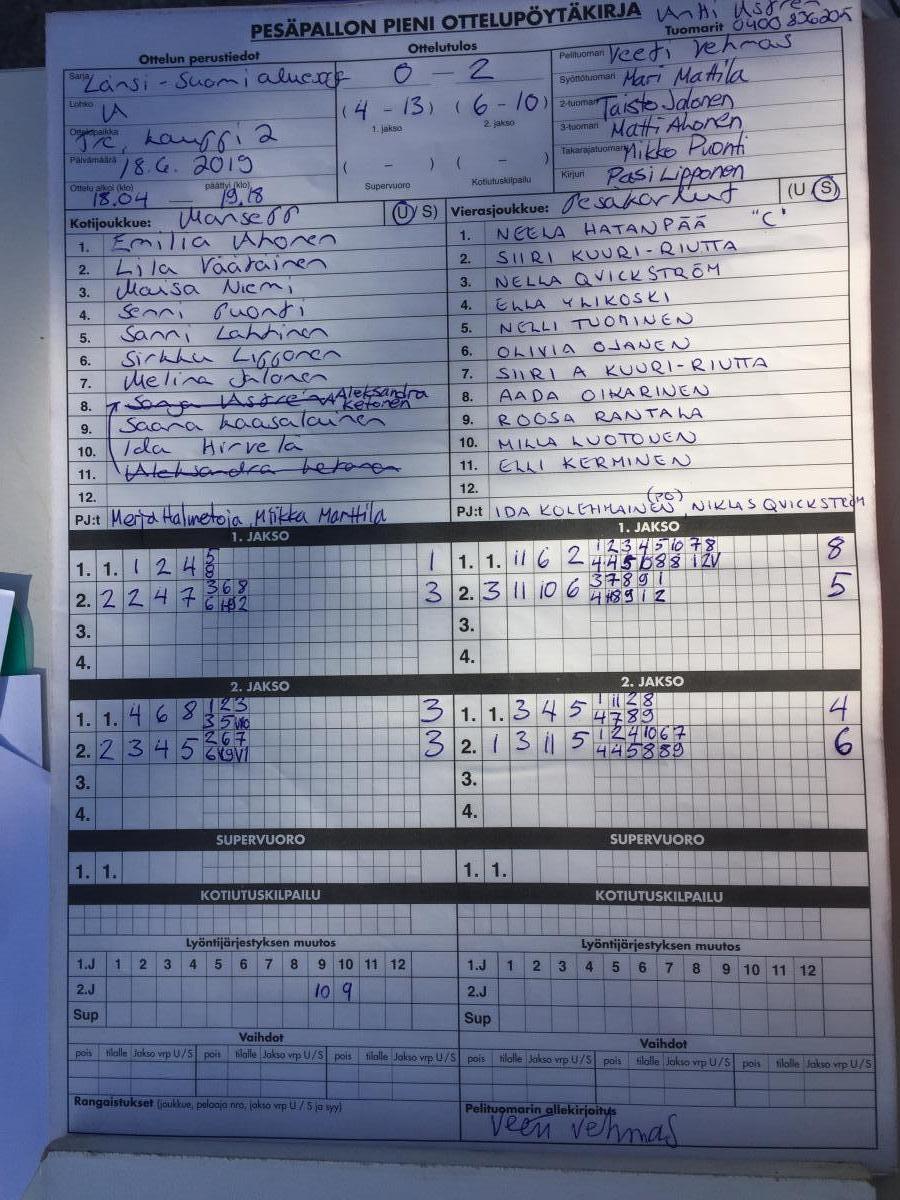 PESÄPALLON PIENI OTTELUPÖYTÄKIRJA
Tuomarit 0400 836205
Ottelun perustiedot
Sarja Länsi-Suomi
Lohko U
Ottelupaikka kauppi 2
Päivämäärä 18.6. 2019
Ottelu alkoi (klo) päättyi (klo)
18.04 — 19.18
Ottelutulos
0 - 2
(4 - 13) (6 - 10)
1. jakso 2. jakso
( - ) ( - )
Supervuoro Kotiutuskilpailu
Pelituomari Veeti Vehmas
Syöttötuomari Mari Mattila
2-tuomari Taisto Jalonen
3-tuomari Matti Ahonen
Takarajatuomari Mikko Puonti
Kirjuri Pasi Lipponen
Kotijoukkue: Manse PP (U/S)
1. Emilia Ahonen
2. Lila Väätäinen
3. Maisa Niemi
4. Senni Puonti
5. Sanni Lahtinen
6. Sirkku Lipponen
7. Melina Jalonen
8. Aleksandra Ketonen
9. Saana Kaasalainen
10. Ida Hirvelä
11. Aleksandra Ketonen
12.
PJ:t Merja Halmetoja, Miikka Marttila
Vierasjoukkue: Pesäkarhut (U S)
1. NEELA HATANPÄÄ "C"
2. SIIRI KUURI-RIUTTA
3. NELLA QVICKSTRÖM
4. ELLA YLIKOSKI
5. NELLI TUOMINEN
6. OLIVIA OJANEN
7. SIIRI A KUURI-RIUTTA
8. AADA OIKARINEN
9. ROOSA RANTALA
10. MILLA LUOTONEN
11. ELLI KERMINEN
12.
PJ:t IDA KOLEHMAINEN (PO), NIKLAS QVICKSTRÖM
1. JAKSO
1. 1. 1 2 4 1
2. 2 2 4 7 3 6 8 3
3.
4.
1. JAKSO
1. 1. 11 6 2 1 2 3 4 5 10 7 8 8
2. 3 11 10 6 3 7 8 9 1 5
3.
4.
2. JAKSO
1. 1. 4 6 8 1 2 3 3
2. 2 3 4 5 2 6 7 3
3.
4.
2. JAKSO
1. 1. 3 4 5 1 11 2 8 4
4 7 8 9
2. 1 3 11 5 1 2 4 10 6 7 6
4 4 5 8 8 9
3.
4.
SUPERVUORO
1. 1.
SUPERVUORO
1. 1.
KOTIUTUSKILPAILU
KOTIUTUSKILPAILU
Lyöntijärjestyksen muutos
1.J 1 2 3 4 5 6 7 8 9 10 11 12
2.J 10 9
Sup
Lyöntijärjestyksen muutos
1.J 1 2 3 4 5 6 7 8 9 10 11 12
2.J
Sup
Vaihdot
pois tilalle Jakso vrp U/S pois tilalle Jakso vrp U/S pois tilalle Jakso vrp U/S
Vaihdot
pois tilalle Jakso vrp U/S pois tilalle Jakso vrp U/S pois tilalle Jakso vrp U/S
Rangaistukset (joukkue, pelaaja nro, jakso vrp U / S ja syy)
Pelituomarin allekirjoitus
Veeti Vehmas